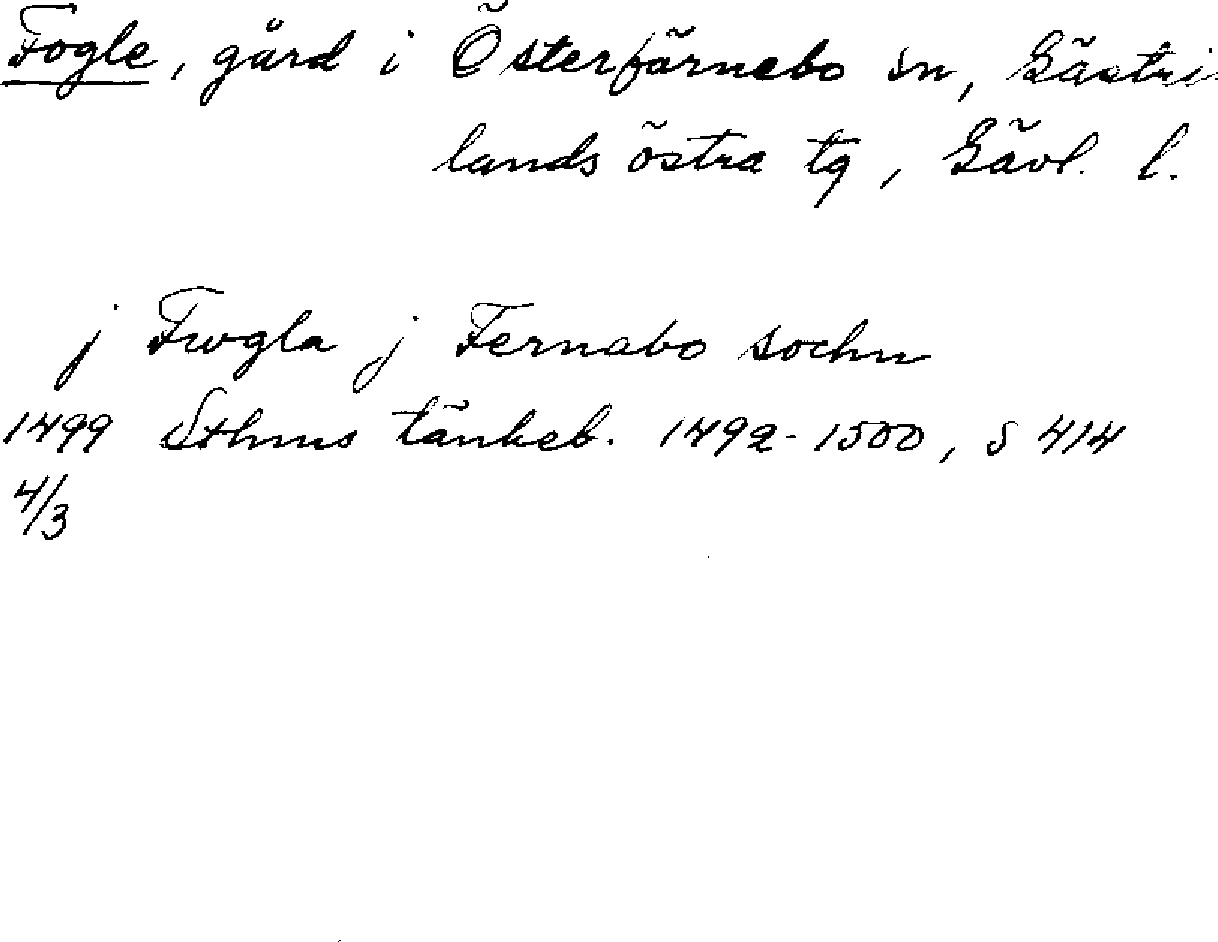 Fogle, gård i Österfärnebo sn, Gästri
lands östra tg, Gävl. l.
j Fwgla j Fernabo sochn
1499 Sthms tänkeb. 1492-1500, s 414
4/3